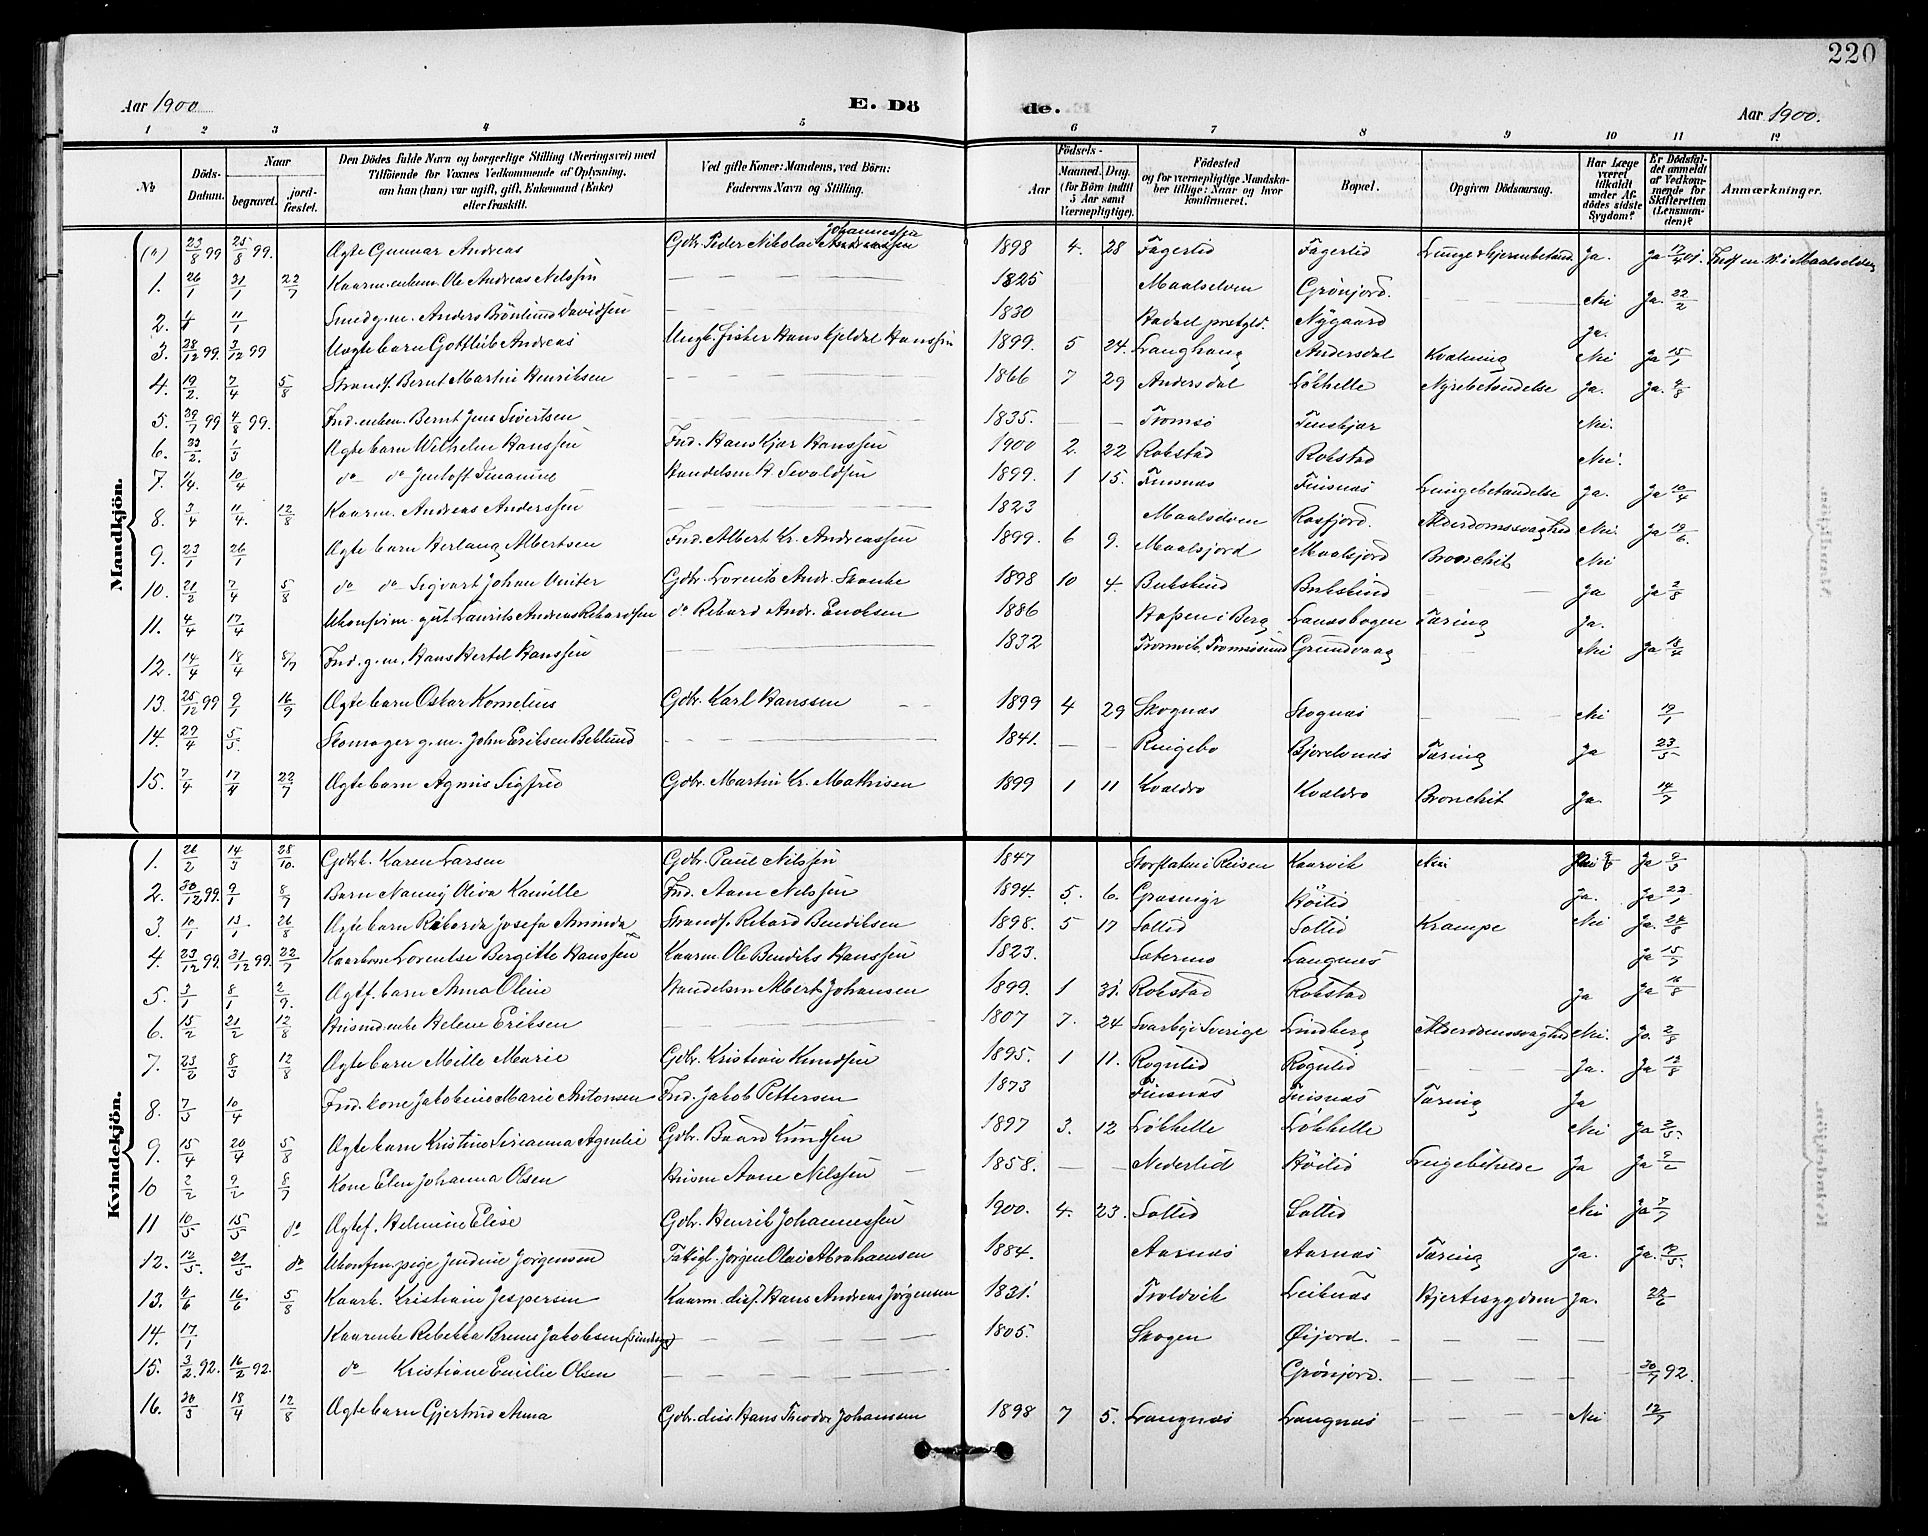 220
Aar 1900. E. Dö de. Aar 1900.
1 2 3 4 5 6 7 8 9 10 11 12
No
Döds-Datum.
Naar begravet. jordfæstet.
Den Dödes fulde Navn og borgerlige Stilling (Næringsvei) med Tilföiende for Voxnes Vedkommende af Oplysning, om han (hun) var ugift, gift, Enkemand (Enke) eller fraskilt.
Ved gifte Koner: Mandens, ved Börn: Faderens Navn og Stilling.
Födsels-
Aar Maaned. Dag. (for Börn indtil 5 Aar samt Værnepligtige).
Födested og for værnepligtige Mandskaber tillige: Naar og hvor konfirmeret.
Bopæl.
Opgiven Dödsaarsag.
Har Læge været tilkaldt under Afdödes sidste Sygdom?
Er Dödsfaldet anmeldt af Vedkommende for Skifteretten (Lensmanden)?
Anmærkninger.
Mandkjön.
(a) 23/8 99 25/8 99. Ægte Gunnar Andreas Gdbr. Peder Nikolai Johannessen 1898 4. 28 Fagerlid Fagerlid Ja. Ja
1. 26/1 31/1 22/7 Kaarm. enkem. Ole Andreas Nilssen 1825 Maalselven Grönjord. Nei Ja. 22/2
2. 11/1 Smed g.m. Anders Brönlund Davidsen 1830 Nygaard Ja.
3. 28/12 99. 3/12 99 Uægte barn Gottlieb Andreas Ungk. Fisker Hans Kjeldal Hanssen 1899. 5 24. Andersdal Kvælning Nei Ja 15/1
4. 19/2. 7/4 5/8 Strands. Bernt Martin Henriksen 1866 7 29 Andersdal Løkhelle Nyrebetændelse Ja. Ja. 4/8
5. 29/7 99 4/8 99. Ind. enkem. Bernt Jens Sivertsen 1835. Tromsø Nei.
6. 1/3 Ægte barn Wilhelm Hanssen Ind. Hans Kjær Hanssen 1900 2. 22 Rokstad Rokstad Nei.
7. 10/4 do do Handelsm A. Sevaldsen 1899. 1 15. Finsnas Finsnas Lungebetændelse Ja. Ja 10/4
8. 3/4 11/4. 12/8 Kaarm. Andreas Anderssen 1823 Maalselven Rosfjord. Alderdomssvaghed Nei. Ja 19/6.
9. 23/1 26/1 Ægte barn Herlaug Albertsen Ind. Albert Kr. Andreassen 1899. 6 9. Maalsjord Maalsjord Bronchit Nei
10. 21/2 7/4 5/8 do do Sigvart Johan Gdbr. Lorents Andr. Skanke 1898 10 4. Bukskind Bukskind Ja Ja 2/8
11. 4/4 17/4 Ukonfirm. gut Laurits Andreas Rikardsen do Rikard Andr. Enoksen 1886 Hopen i Berg Tæring Ja.
12. 14/4 18/4 8/7 Ind. g.m. Hans Hertel Hanssen 1832 Tromvik, Tromsösund Grundvaag Nei Ja 18/4
13. 25/12 99 9/1 16/9 Ægte barn Oskar Kornelius Gdbr. Karl Hanssen 1899 4 29 Skognas Skognas Nei 19/1
14. 29/4 5/5. Skomager g.m. John Eriksen Beklund 1841. Ringebo Bjorelvnes Tæring Ja 23/5
15. 7/4 17/4 22/7 Ægte barn Agmis Sigfred Gdbr. Martin Kr. Mathisen 1899 1 11 Kvaldro Kvaldro Bronchit Ja. 14/7
Kvindekjön.
1. 26/2 14/3 28/10. Gdbrk. Karen Larsen Gdbr. Paul Nilssen 1847 Kaarvik Nei Ja 9/3
2. 30/12 99. 9/1 8/7 Barn Nanny Oliva Kamille Ind. Aane Nilssen 1894. 5. 6. Höilid Ja. Ja
3. 10/1 15/1 26/8 Ægte barn Rikarda Josefa Aminda Strands. Rikard Bendiksen 1898. 5 17 Sollid Sollid Krampe Nei Ja. 24/8
4. 23/12 99. 31/12 99. 22/7 Lorentse Bergitte Hanssen Kaarm. Ole Bendiks Hanssen 1823. Langnes Ja 15/7
5. 3/1 8/1 2/9. Ægtf. barn Anna Oline Handelsm Albert Johansen 1899. 1 31. Rokstad Rokstad Ja Ja 16/8
6. 15/2 21/2 12/8 Husmd. enke Helene Eriksen 1807 7. 24 Svarby i Sverige Lindberg Alderdomssvaghed Nei. Ja. 2/8
7. 23/2 8/3 12/8 Ægte barn Mille Marie Gdbr. Kristian Knudsen 1895. 1 11. Rognlid Rognlid Ja. Ja 12/8
8. 7/3 10/4 Ind. kone Jakobine Marie Antonsen Ind. Jakob Pettersen 1873 Finsnas Finsnas Tæring Ja
9. 15/4 20/4 5/8 Ægte barn Kristine Gdbr. Baard Knudsen 1897 3. 12 Løkhelle Løkhelle Nei Ja 2/5.
10 2/2 9/2 8/7 Kone Elen Johanna Olsen Husm Aane Nilssen 1858. Nederlid Höilid Ja Ja 9/2
11 10/5 15/5 do Ægtef. Helmine Elise Gdbr. Henrik Johannessen 1900. 4. 23. Sollid Sollid Nei Ja 7/7
12. 12/5. 21/5 do Ukonfm. pige Jendine Jörgensen Fattigl. Jörgen Olai Abrahamsen 1884. Aarnas Aarnas Tæring Ja. Ja. 19/5.
13. 11/6 16/6 5/8 Kaark. Kristiane Jespersen Kaarm. diss. Hans Andreas Jörgensen 1831. Troldvik Leiknas Hjertesygdom Ja. 22/6
14. 17/1 Kaarenke Rebekka Jakobsen 1805. Skogen Øijord.
15. 3/2. 92. 16/2 92. do Kristiane Emilie Olsen Grönjord. 30/7 92.
16. 30/3 18/4 12/8 Ægte barn Gjertrud Anna Gdbr. diss. Hans Theodor Johansen 1898 7 5. Langnas Langnas Nei 12/7